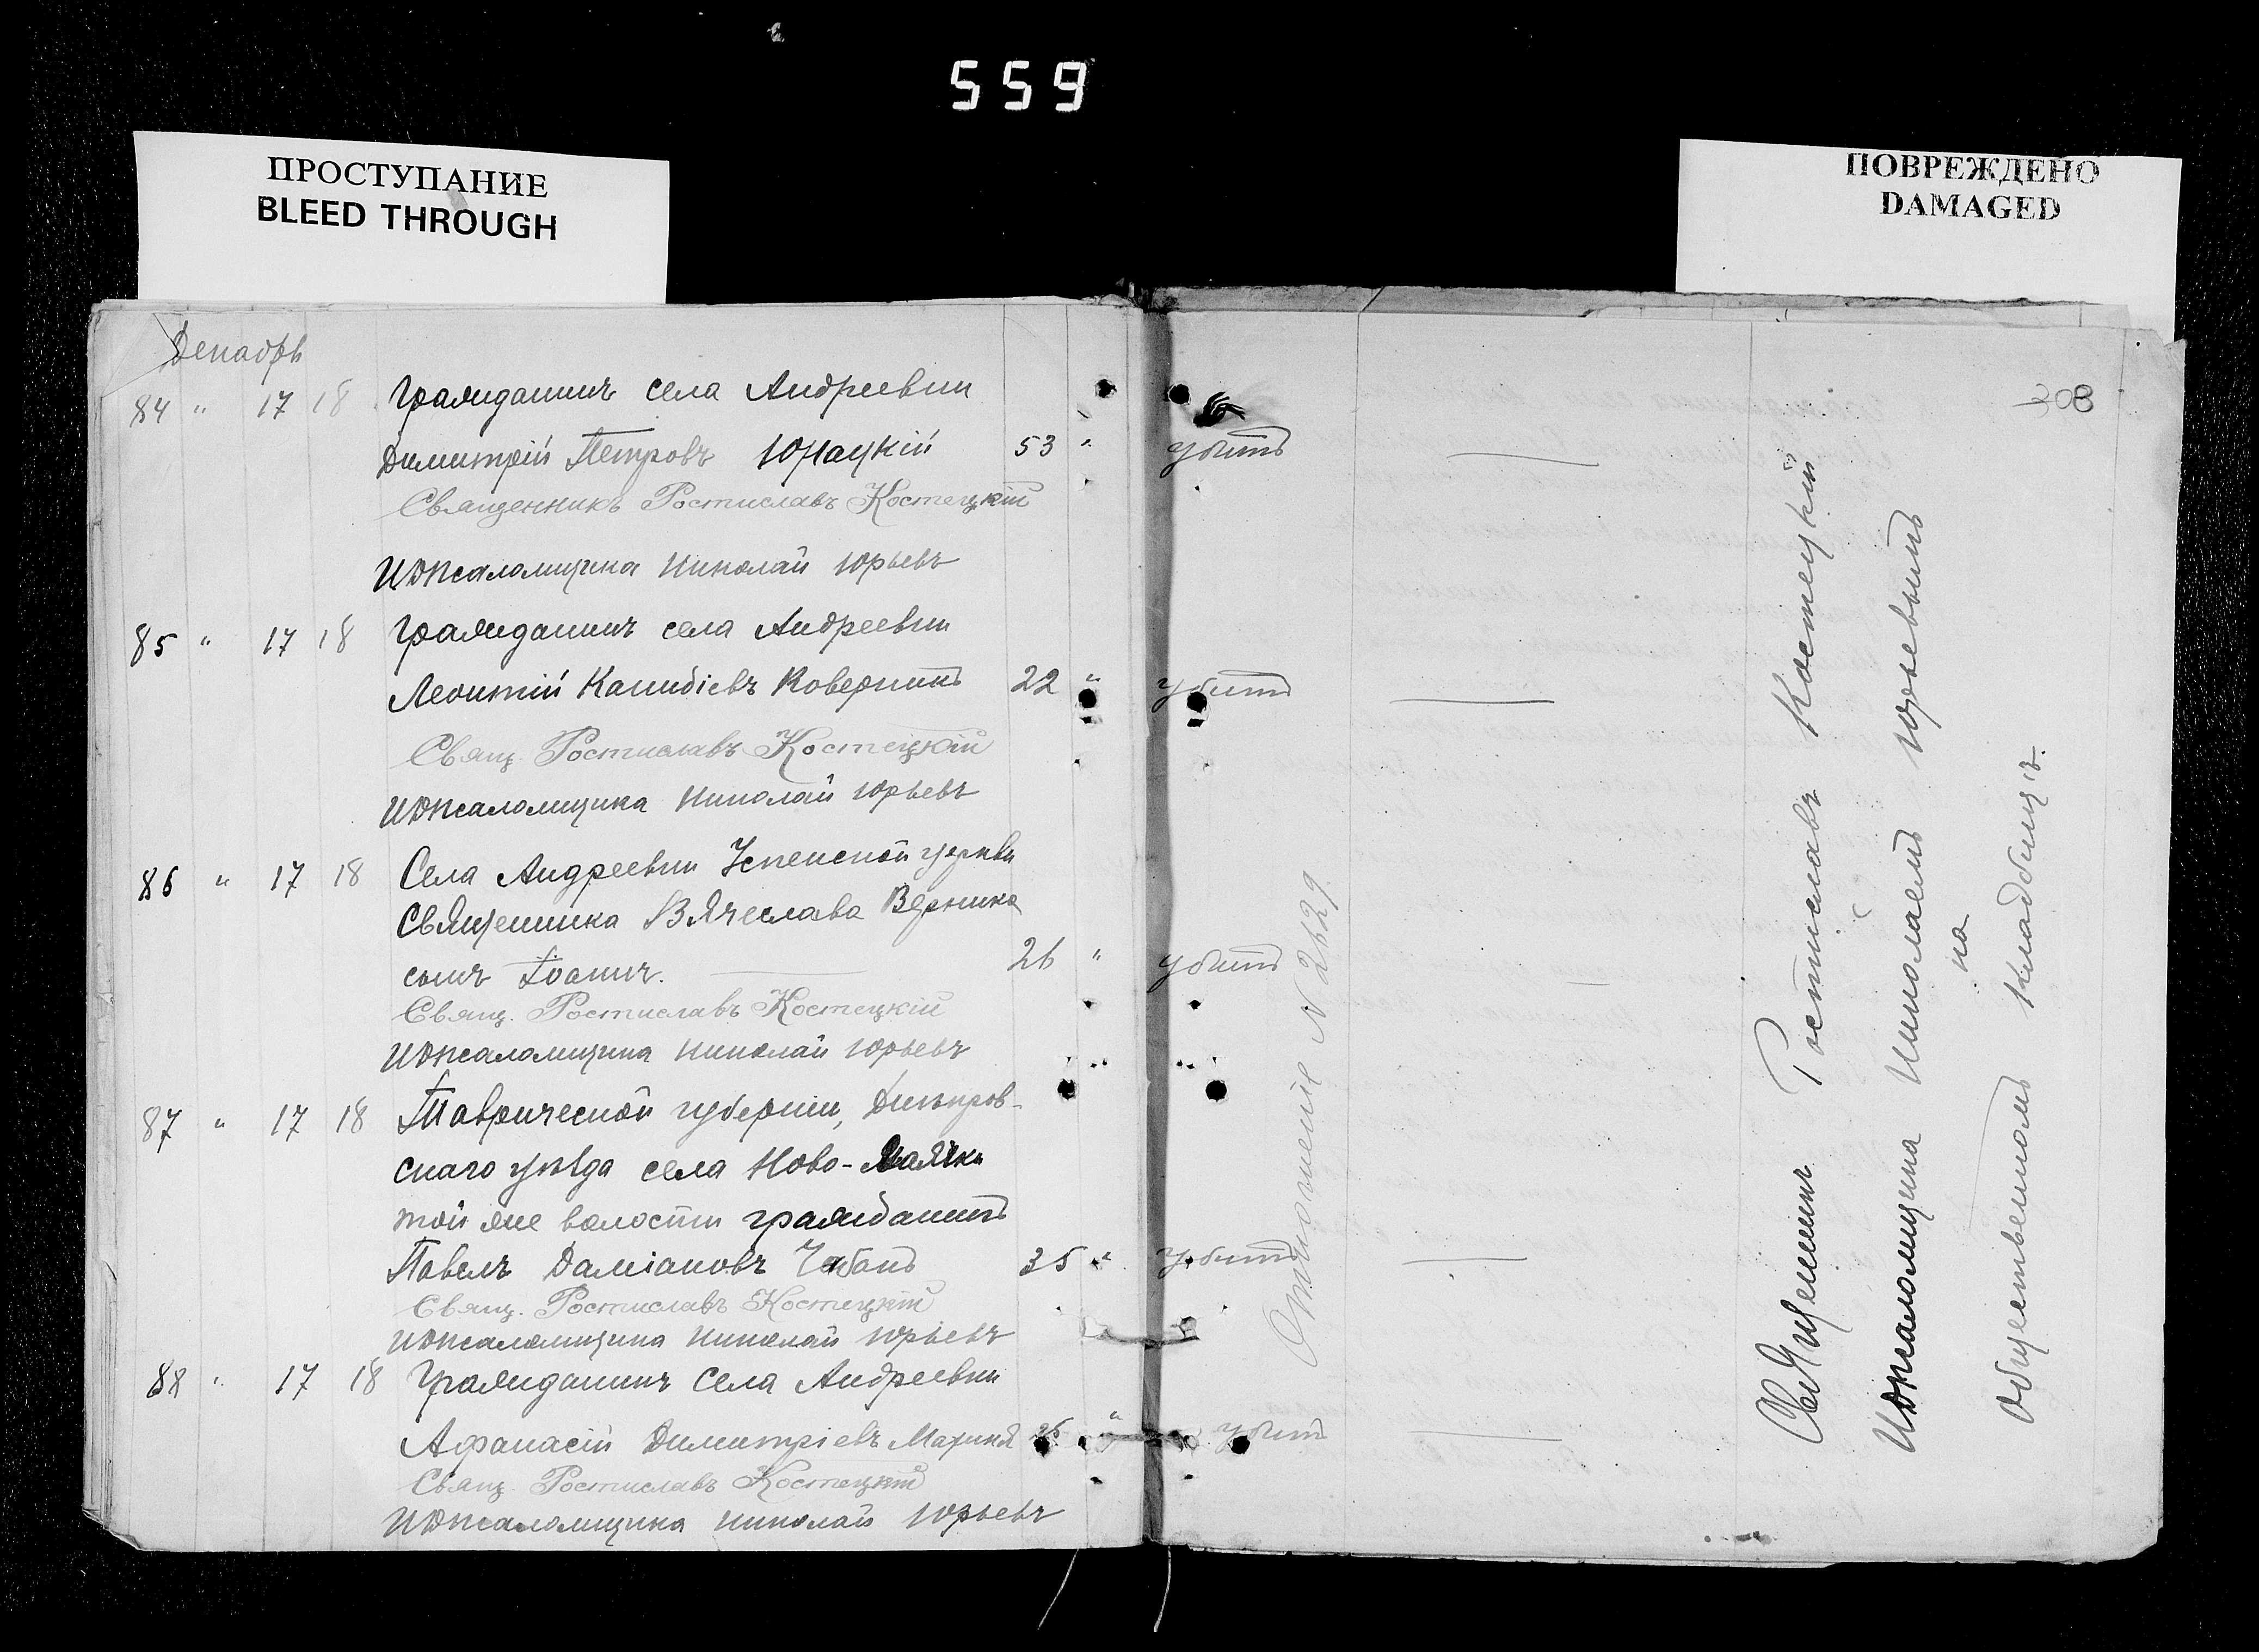 559
ПРОСТУПАНИЕ
BLEED THROUGH
ПОВРЕЖДЕНО
DAMAGED
Декабрь
84 " 17 18 Гражданинъ села Андреевки
Димитрій Петровъ Юнацкій 53 " убитъ
Священникъ Ростиславъ Костецкій
И.д. псаломщика Николай Юрьевъ
85 " 17 18 Гражданинъ села Андреевки
Леонтій 22 " убитъ
Свящ. Ростиславъ Костецкій
И.д. псаломщика Николай Юрьевъ
86 " 17 18 Села Андреевки Успенской церкви
Священника Вячеслава Верника
сынъ Іоаннъ. 26 " убитъ
Свящ. Ростиславъ Костецкій
И.д. псаломщика Николай Юрьевъ
87 " 17 18 Таврической губерніи, Днѣпров-
скаго уѣзда села Ново-Маячки
той же волости гражданинъ
Павелъ Даміановъ Чабанъ 35 " убитъ
Свящ. Ростиславъ Костецкій
И.д. псаломщика Николай Юрьевъ
88 " 17 18 Гражданинъ села Андреевки
Афанасій Димитріевъ " убитъ
Свящ. Ростиславъ Костецкій
И.д. псаломщика Николай Юрьевъ
308
Отношеніе N 2629
Священникъ Ростиславъ Костецкій
И.д. псаломщика Николаемъ Юрьевымъ
на
Общественномъ кладбищѣ.